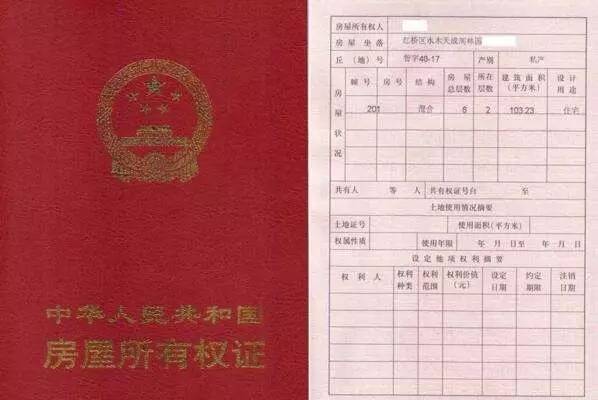 中华人民共和国
房屋所有权证
房屋所有权人
房屋坐落 红桥区水木天成阅林园
丘（地）号 普字48-17 产别 私产
房屋状况 幢号 房号 结构 房屋总层数 所在层数 建筑面积（平方米） 设计用途
201 混合 6 2 103.23 住宅
共有人 等 人 共有权证号自 至
土地使用情况摘要
土地证号 使用面积（平方米）
权属性质 使用年限 年 月 日至 年 月 日
设定他项权利摘要
权利人 权利种类 权利范围 权利价值（元） 设定日期 约定期限 注销日期